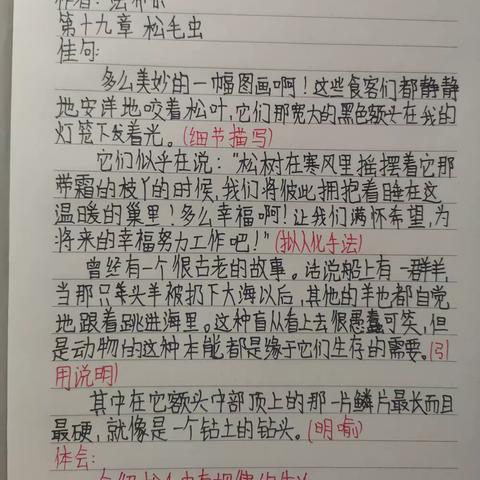 作者：法布尔
第十九章 松毛虫
佳句：
多么美妙的一幅图画啊！这些食客们都静静
地安详地咬着松叶，它们那宽大的黑色额头在我的
灯笼下发着光。(细节描写)
它们似乎在说："松树在寒风里摇摆着它那
带霜的枝丫的时候，我们将彼此拥抱着睡在这
温暖的巢里！多么幸福啊！让我们满怀希望，为
将来的幸福努力工作吧！"(拟人化手法)
曾经有一个很古老的故事。话说船上有一群羊，
当那只羊头羊被扔下大海以后，其他的羊也都自觉
地跟着跳进海里。这种盲从看上去很愚蠢可笑，但
是动物的这种本能都是缘于它们生存的需要。(引
用说明)
其中在它额头中部顶上的那一片鳞片最长而且
最硬，就像是一个钻土的钻头。(明喻)
体会：